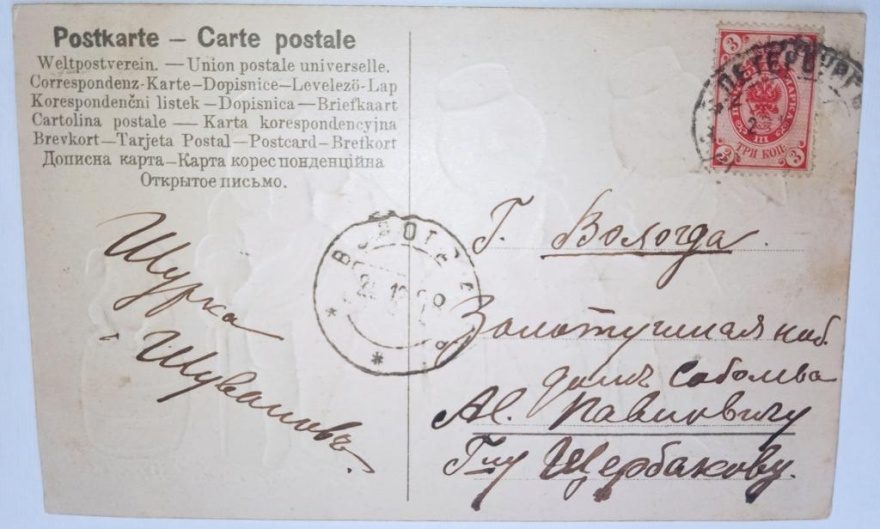 Postkarte — Carte postale
Weltpostverein. — Union postale universelle.
Correspondenz-Karte—Dopisnice—Levelező-Lap
Korespondenčni listek — Dopisnica — Briefkaart
Cartolina postale — Karta korespondencyjna
Brevkort — Tarjeta Postal — Postcard — Brefkort
Дописна карта—Карта кореспонденційна
Открытое письмо.
Шурка
Шуваловъ.
ВОЛОГДА
Г. Вологда.
Золотушная наб.
домъ
Ал. Павловичу
Г-ну Щербакову.
3 3
ПЕТЕРБУРГ
МАРКА
III
ТРИ КОП.
3 3